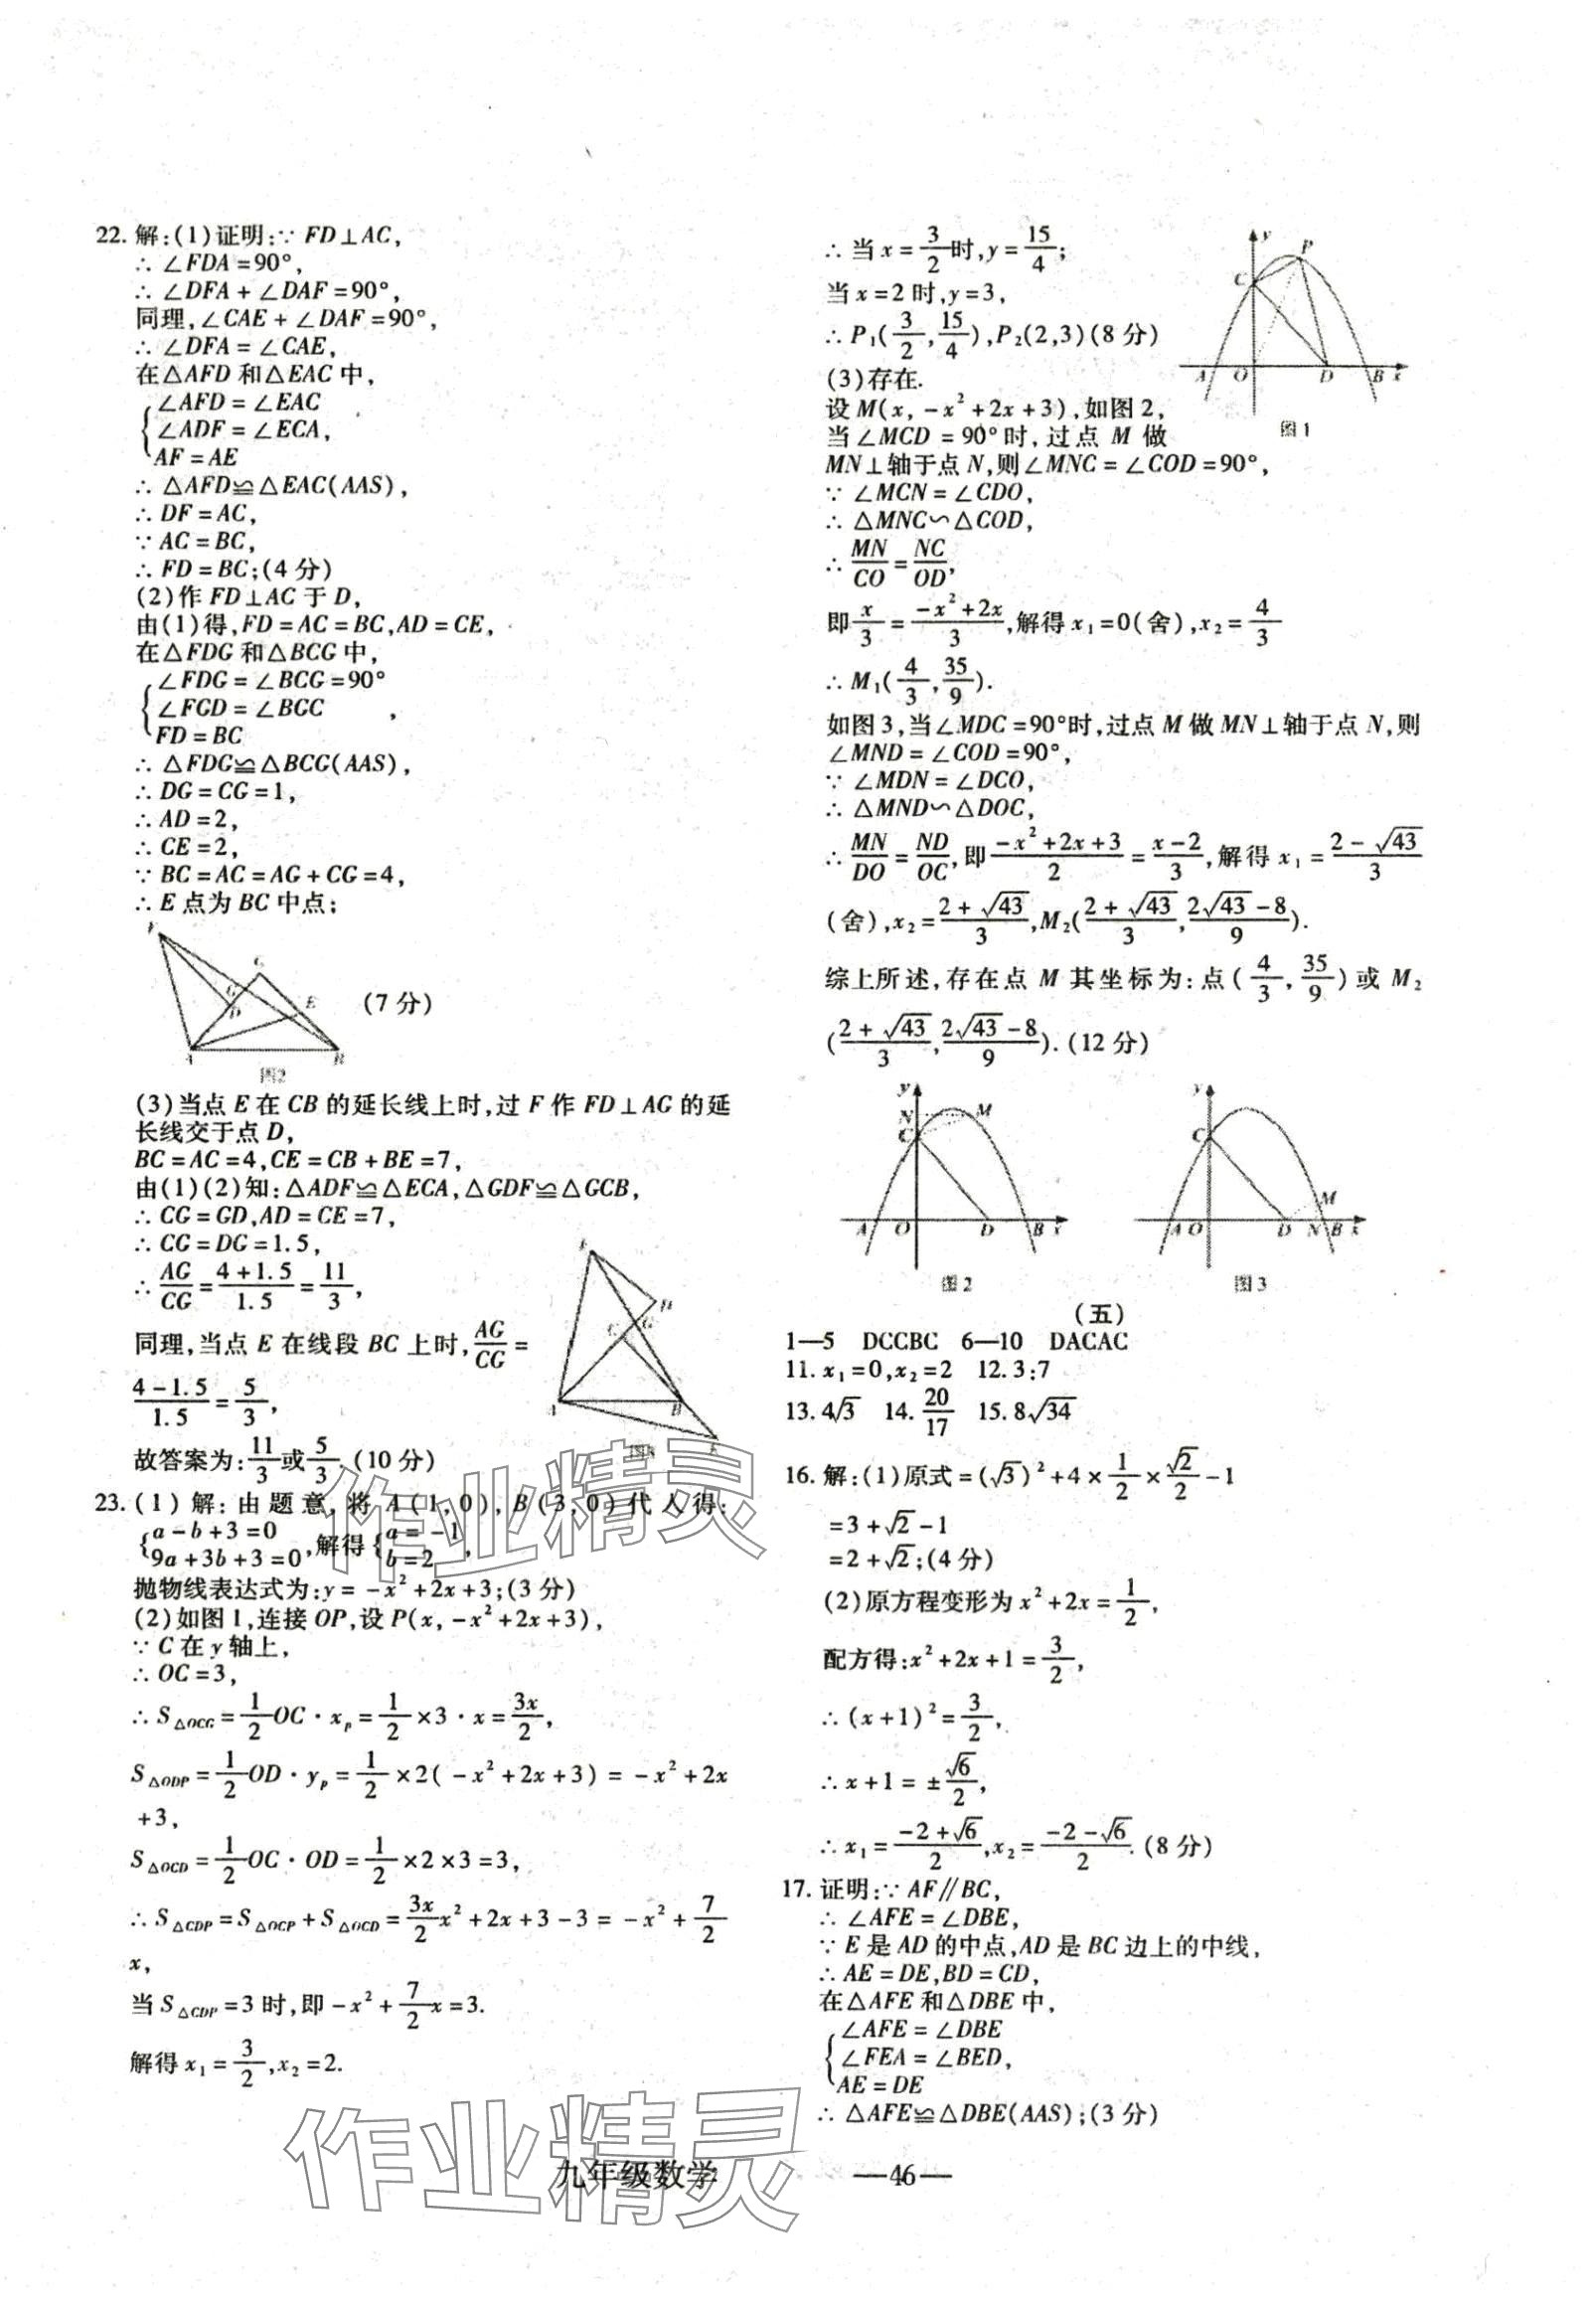 22. 解:(1)证明:∵ FD⊥AC,
∴ ∠FDA=90°,
∴ ∠DFA+∠DAF=90°,
同理,∠CAE+∠DAF=90°,
∴ ∠DFA=∠CAE,
在△AFD 和△EAC 中,
{∠AFD=∠EAC
∠ADF=∠ECA,
AF=AE
∴ △AFD≌△EAC(AAS),
∴ DF=AC,
∵ AC=BC,
∴ FD=BC;(4 分)
(2)作 FD⊥AC 于 D,
由(1)得,FD=AC=BC,AD=CE,
在△FDG 和△BCG 中,
{∠FDG=∠BCG=90°
∠FGD=∠BGC ,
FD=BC
∴ △FDG≌△BCG(AAS),
∴ DG=CG=1,
∴ AD=2,
∴ CE=2,
∵ BC=AC=AG+CG=4,
∴ E 点为 BC 中点;
F C G D E A B
(7 分)
图2
(3)当点 E 在 CB 的延长线上时,过 F 作 FD⊥AG 的延
长线交于点 D,
BC=AC=4,CE=CB+BE=7,
由(1)(2)知:△ADF≌△ECA,△GDF≌△GCB,
∴ CG=GD,AD=CE=7,
∴ CG=DG=1.5,
∴ AG/CG=(4+1.5)/1.5=11/3,
同理,当点 E 在线段 BC 上时,AG/CG=
(4-1.5)/1.5=5/3,
F D C G A B E
图3
故答案为:11/3或5/3.(10 分)
23. (1) 解: 由 题 意, 将 A(1,0), B(3,0) 代 人 得:
{a-b+3=0
9a+3b+3=0,解得{a=-1
b=2,
抛物线表达式为:y=-x²+2x+3;(3 分)
(2)如图 1,连接 OP,设 P(x,-x²+2x+3),
∵ C 在 y 轴上,
∴ OC=3,
∴ S△OCG=1/2OC·xₚ=1/2×3·x=3x/2,
S△ODP=1/2OD·yₚ=1/2×2(-x²+2x+3)=-x²+2x
+3,
S△OCD=1/2OC·OD=1/2×2×3=3,
∴ S△CDP=S△OCP+S△OCD=3x/2x²+2x+3-3=-x²+7/2
x,
当 S△CDP=3 时,即-x²+7/2x=3.
解得 x₁=3/2,x₂=2.
∴ 当 x=3/2时,y=15/4;
当 x=2 时,y=3,
∴ P₁(3/2,15/4),P₂(2,3)(8 分)
(3)存在.
y P C A O D B x
图1
设 M(x,-x²+2x+3),如图 2,
当∠MCD=90°时, 过点 M 做
MN⊥轴于点 N,则∠MNC=∠COD=90°,
∵ ∠MCN=∠CDO,
∴ △MNC∽△COD,
∴ MN/CO=NC/OD,
即x/3=(-x²+2x)/3,解得 x₁=0(舍),x₂=4/3
∴ M₁(4/3,35/9).
如图 3,当∠MDC=90°时,过点 M 做 MN⊥轴于点 N,则
∠MND=∠COD=90°,
∵ ∠MDN=∠DCO,
∴ △MND∽△DOC,
∴ MN/DO=ND/OC,即(-x²+2x+3)/2=(x-2)/3,解得 x₁=(2-√43)/3
(舍),x₂=(2+√43)/3,M₂((2+√43)/3,(2√43-8)/9).
综上所述,存在点 M 其坐标为:点(4/3,35/9)或 M₂
((2+√43)/3,(2√43-8)/9).(12 分)
y N M C A O D B x
图2
y C M A O D N B x
图3
(五)
1—5 DCCBC 6—10 DACAC
11. x₁=0,x₂=2 12. 3:7
13. 4√3 14. 20/17 15. 8√34
16. 解:(1)原式=(√3)²+4×1/2×√2/2-1
=3+√2-1
=2+√2;(4 分)
(2)原方程变形为 x²+2x=1/2,
配方得:x²+2x+1=3/2,
∴ (x+1)²=3/2,
∴ x+1=±√6/2,
∴ x₁=(-2+√6)/2,x₂=(-2-√6)/2.(8 分)
17. 证明:∵ AF∥BC,
∴ ∠AFE=∠DBE,
∵ E 是 AD 的中点,AD 是 BC 边上的中线,
∴ AE=DE,BD=CD,
在△AFE 和△DBE 中,
{∠AFE=∠DBE
∠FEA=∠BED,
AE=DE
∴ △AFE≌△DBE(AAS);(3 分)
作业精灵
作业精灵
九年级数学 —46—